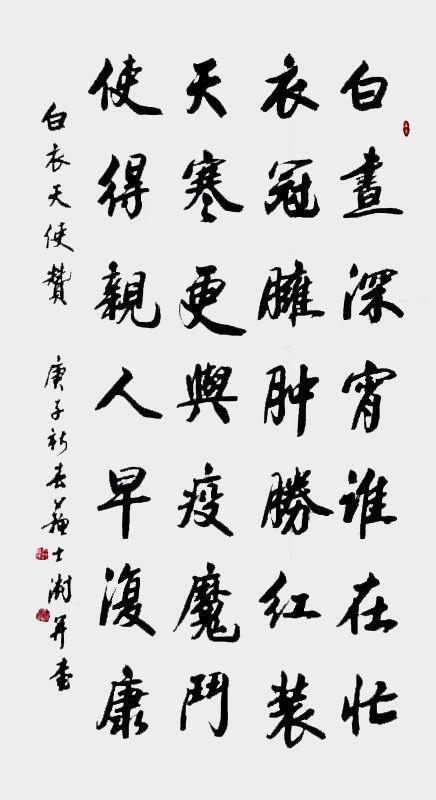 白晝深宵谁在忙
衣冠臃肿勝红装
天寒更與疫魔鬥
使得親人早復康
白衣天使贊 庚子新春蘇士澍并書